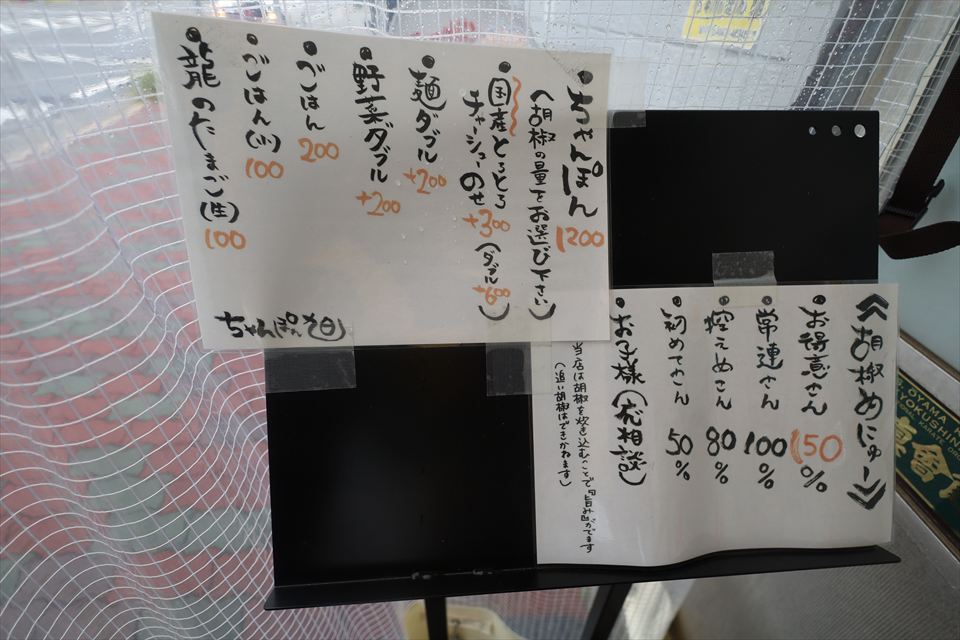 ・ちゃんぽん 1200
(胡椒の量をお選び下さい)
・国産とろとろ
チャーシューのせ +300 (ダブル +600)
・麺ダブル +200
・野菜ダブル +200
・ごはん 200
・ごはん(小) 100
・龍のたまご(生) 100
《胡椒めにゅー》
・お得意さん 150%
・常連さん 100%
・控えめさん 80%
・初めてさん 50%
・お子様(応相談)
当店は胡椒を炊き込むことで『旨み』がでます
(追い胡椒はできかねます)
OYAMA
KYOKUSHIN
KARATE